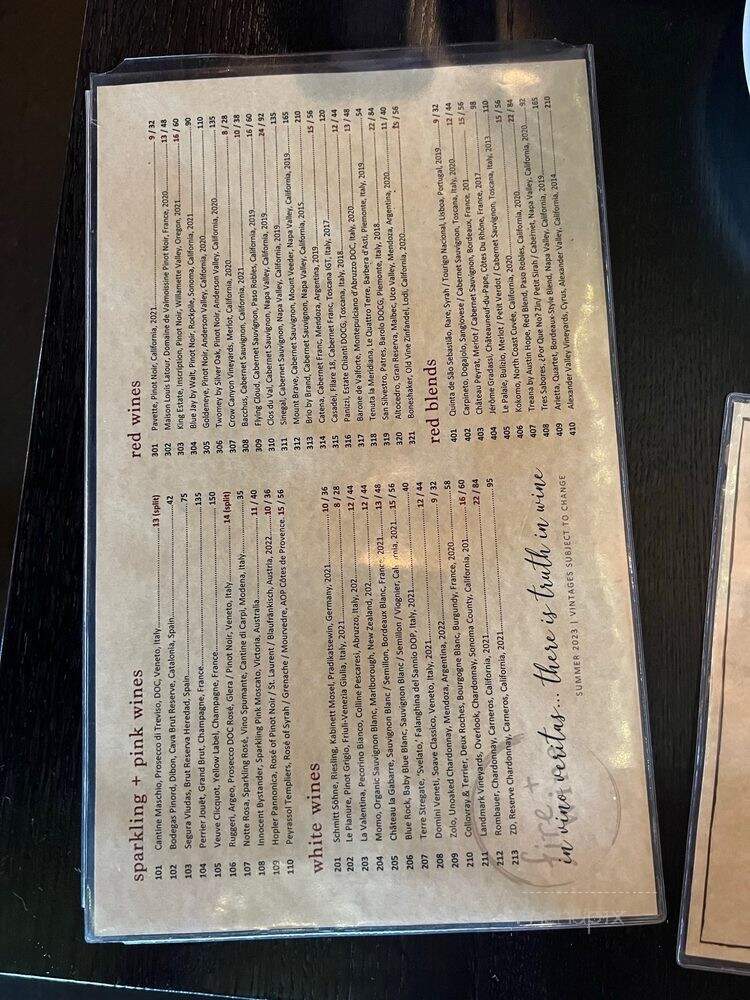 sparkling + pink wines
101 Cantine Maschio, Prosecco di Treviso, DOC, Veneto, Italy 13 (split)
102 Bodegas Pinord, Dibon, Cava Brut Reserve, Catalonia, Spain 42
103 Segura Viudas, Brut Reserva Heredad, Spain 75
104 Perrier Jouët, Grand Brut, Champagne, France 135
105 Veuve Clicquot, Yellow Label, Champagne, France 150
106 Ruggeri, Argeo, Prosecco DOC Rosé, Glera / Pinot Noir, Veneto, Italy 14 (split)
107 Notte Rosa, Sparkling Rosé, Vino Spumante, Cantine di Carpi, Modena, Italy 35
108 Innocent Bystander, Sparkling Pink Moscato, Victoria, Australia 11 / 40
109 Hopler Pannonica, Rosé of Pinot Noir / St. Laurent / Blaufränkisch, Austria, 2022 10 / 36
110 Peyrassol Templiers, Rosé of Syrah / Grenache / Mourvedre, AOP Côtes de Provence 15 / 56
white wines
201 Schmitt Söhne, Riesling, Kabinett Mosel, Pradikatsewin, Germany, 2021 10 / 36
202 Le Pianure, Pinot Grigio, Friuli-Venezia Giulia, Italy, 2021 8 / 28
203 La Valentina, Pecorino Bianco, Colline Pescaresi, Abruzzo, Italy, 202 12 / 44
204 Momo, Organic Sauvignon Blanc, Marlborough, New Zealand, 202 12 / 44
205 Château la Gabarre, Sauvignon Blanc / Semillon, Bordeaux Blanc, France 2021 13 / 48
206 Blue Rock, Baby Blue Blanc, Sauvignon Blanc / Semillon / Viognier, California, 2021 15 / 56
207 Terre Stregate, 'Svelato,' Falanghina del Sannio DOP, Italy, 2021 40
208 Domini Veneti, Soave Classico, Veneto, Italy, 2021 12 / 44
209 Zolo, Unoaked Chardonnay, Mendoza, Argentina, 2022 9 / 32
210 Collovray & Terrier, Deux Roches, Bourgogne Blanc, Burgundy, France, 2020 58
211 Landmark Vineyards, Overlook, Chardonnay, Sonoma County, California, 201 16 / 60
212 Rombauer, Chardonnay, Carneros, California, 2021 22 / 84
213 ZD, Reserve Chardonnay, Carneros, California, 2021 95
fire +
in vino veritas... there is truth in wine
SUMMER 2023 | VINTAGES SUBJECT TO CHANGE
red wines
301 Pavette, Pinot Noir, California, 2021 9 / 32
302 Maison Louis Latour, Domaine de Valmoissine Pinot Noir, France, 2020 13 / 48
303 King Estate, Inscription, Pinot Noir, Willamette Valley, Oregon, 2021 16 / 60
304 Blue Jay by Walt, Pinot Noir, Rockpile, Sonoma, California, 2021 90
305 Goldeneye, Pinot Noir, Anderson Valley, California, 2020 110
306 Twomey by Silver Oak, Pinot Noir, Anderson Valley, California, 2020 135
307 Crow Canyon Vineyards, Merlot, California, 2020 8 / 28
308 Bacchus, Cabernet Sauvignon, California, 2021 10 / 38
309 Flying Cloud, Cabernet Sauvignon, Paso Robles, California, 2019 16 / 60
310 Clos du Val, Cabernet Sauvignon, Napa Valley, California, 2019 24 / 92
311 Sinegal, Cabernet Sauvignon, Napa Valley, California, 2019 135
312 Mount Brave, Cabernet Sauvignon, Mount Veeder, Napa Valley, California, 2019 165
313 Brio by Brand, Cabernet Sauvignon, Napa Valley, California, 2015 210
314 Catena, Cabernet Franc, Mendoza, Argentina, 2019 15 / 56
315 Casadei, Filare 18, Cabernet Franc, Toscana IGT, Italy, 2017 120
316 Panizzi, Estate Chianti DOCG, Toscana, Italy, 2018 12 / 44
317 Barone de Valforte, Montepulciano d'Abruzzo DOC, Italy, 2020 13 / 48
318 Tenuta la Meridiana, Le Quattro Terre, Barbera d'Asti, Piemonte, Italy, 2019 54
319 San Silvestro, Patres, Barolo DOCG, Piemonte, Italy, 2018 22 / 84
320 Altocedro, Gran Reserva, Malbec, Uco Valley, Mendoza, Argentina, 2020 11 / 40
321 Boneshaker, Old Vine Zinfandel, Lodi, California, 2020 15 / 56
red blends
401 Quinta de São Sebastião, Rare, Syrah / Tourigo Nacional, Lisboa, Portugal, 2019 9 / 32
402 Carpineto, Dogajolo, Sangiovese / Cabernet Sauvignon, Toscana, Italy, 2020 12 / 44
403 Château Peyrat, Merlot / Cabernet Sauvignon, Bordeaux, France, 201 15 / 56
404 Jerôme Gradassi, Châteauneuf-du-Pape, Côtes Du Rhône, France, 2017 98
405 Le Palaie, Bulizio, Merlot / Petit Verdot / Cabernet Sauvignon, Toscana, Italy, 2013 110
406 Kokomo, North Coast Cuvée, California, 2020 15 / 56
407 Treana by Austin Hope, Red Blend, Paso Robles, California, 2020 22 / 84
408 Tres Sabores, ¿Por Que No? Zin / Petit Sirah / Cabernet, Napa Valley, California, 2020 92
409 Arietta, Quartet, Bordeaux-Style Blend, Napa Valley, California, 2019 165
410 Alexander Valley Vineyards, Cyrus, Alexander Valley, California, 2014 210